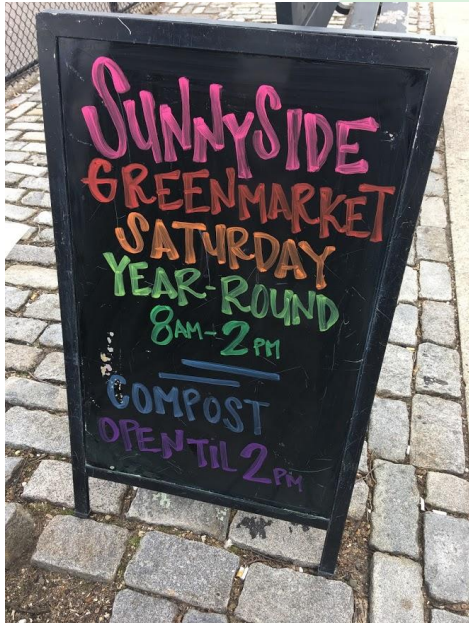 SUNNYSIDE
GREENMARKET
SATURDAY
YEAR-ROUND
8AM-2PM
COMPOST
OPEN TIL 2PM